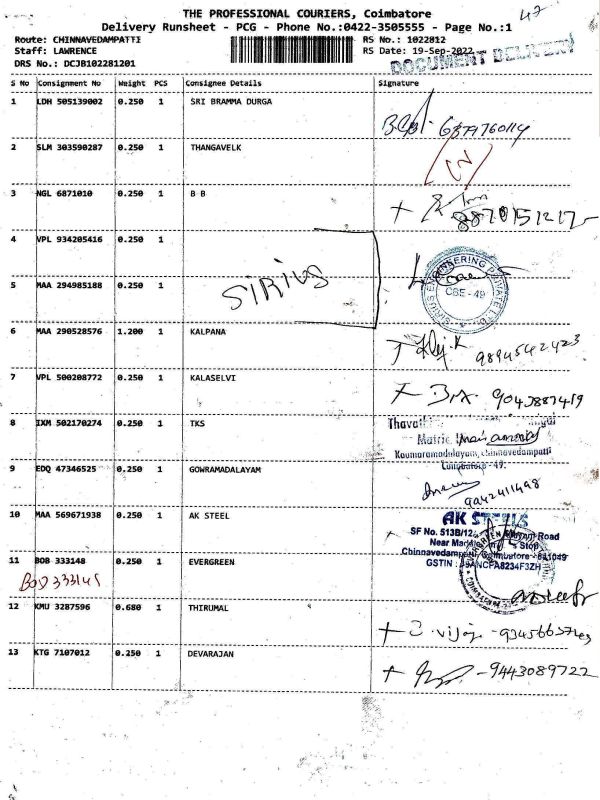 THE PROFESSIONAL COURIERS, Coimbatore
47
Delivery Runsheet - PCG - Phone No.:0422-3505555 - Page No.:1
Route: CHINNAVEDAMPATTI
RS No.: 1022012
Staff: LAWRENCE
RS Date: 19-Sep-2022
DRS No.: DCJB102281201
DOCUMENT DELIVERY
S No Consignment No Weight PCS Consignee Details Signature
1 LDH 505139002 0.250 1 SRI BRAMMA DURGA
2 SLM 303590287 0.250 1 THANGAVELK
3 NGL 6871010 0.250 1 B B
8870151217
4 VPL 934205416 0.250 1
SIRIUS
ENGINEERING PRIVATE LTD.
CBE - 49
5 MAA 294985188 0.250 1
6 MAA 290528576 1.200 1 KALPANA
98945 42423
7 VPL 500208772 0.250 1 KALASELVI
9043887419
8 IXM 502170274 0.250 1 TKS
Matric
Koumaramadalayam, chinnavedampatti
Coimbatore - 49.
9 EDQ 47346525 0.250 1 GOWRAMADALAYAM
9442411498
10 MAA 569671938 0.250 1 AK STEEL
AK STEELS
SF No. 513B/12 Road
Near Stop
Chinnavedampatti, Coimbatore - 641049
GSTIN :
11 BOB 333148 0.250 1 EVERGREEN
BOB 333148
12 KMU 3287596 0.680 1 THIRUMAL
vijay
13 KTG 7107012 0.250 1 DEVARAJAN
9443089722